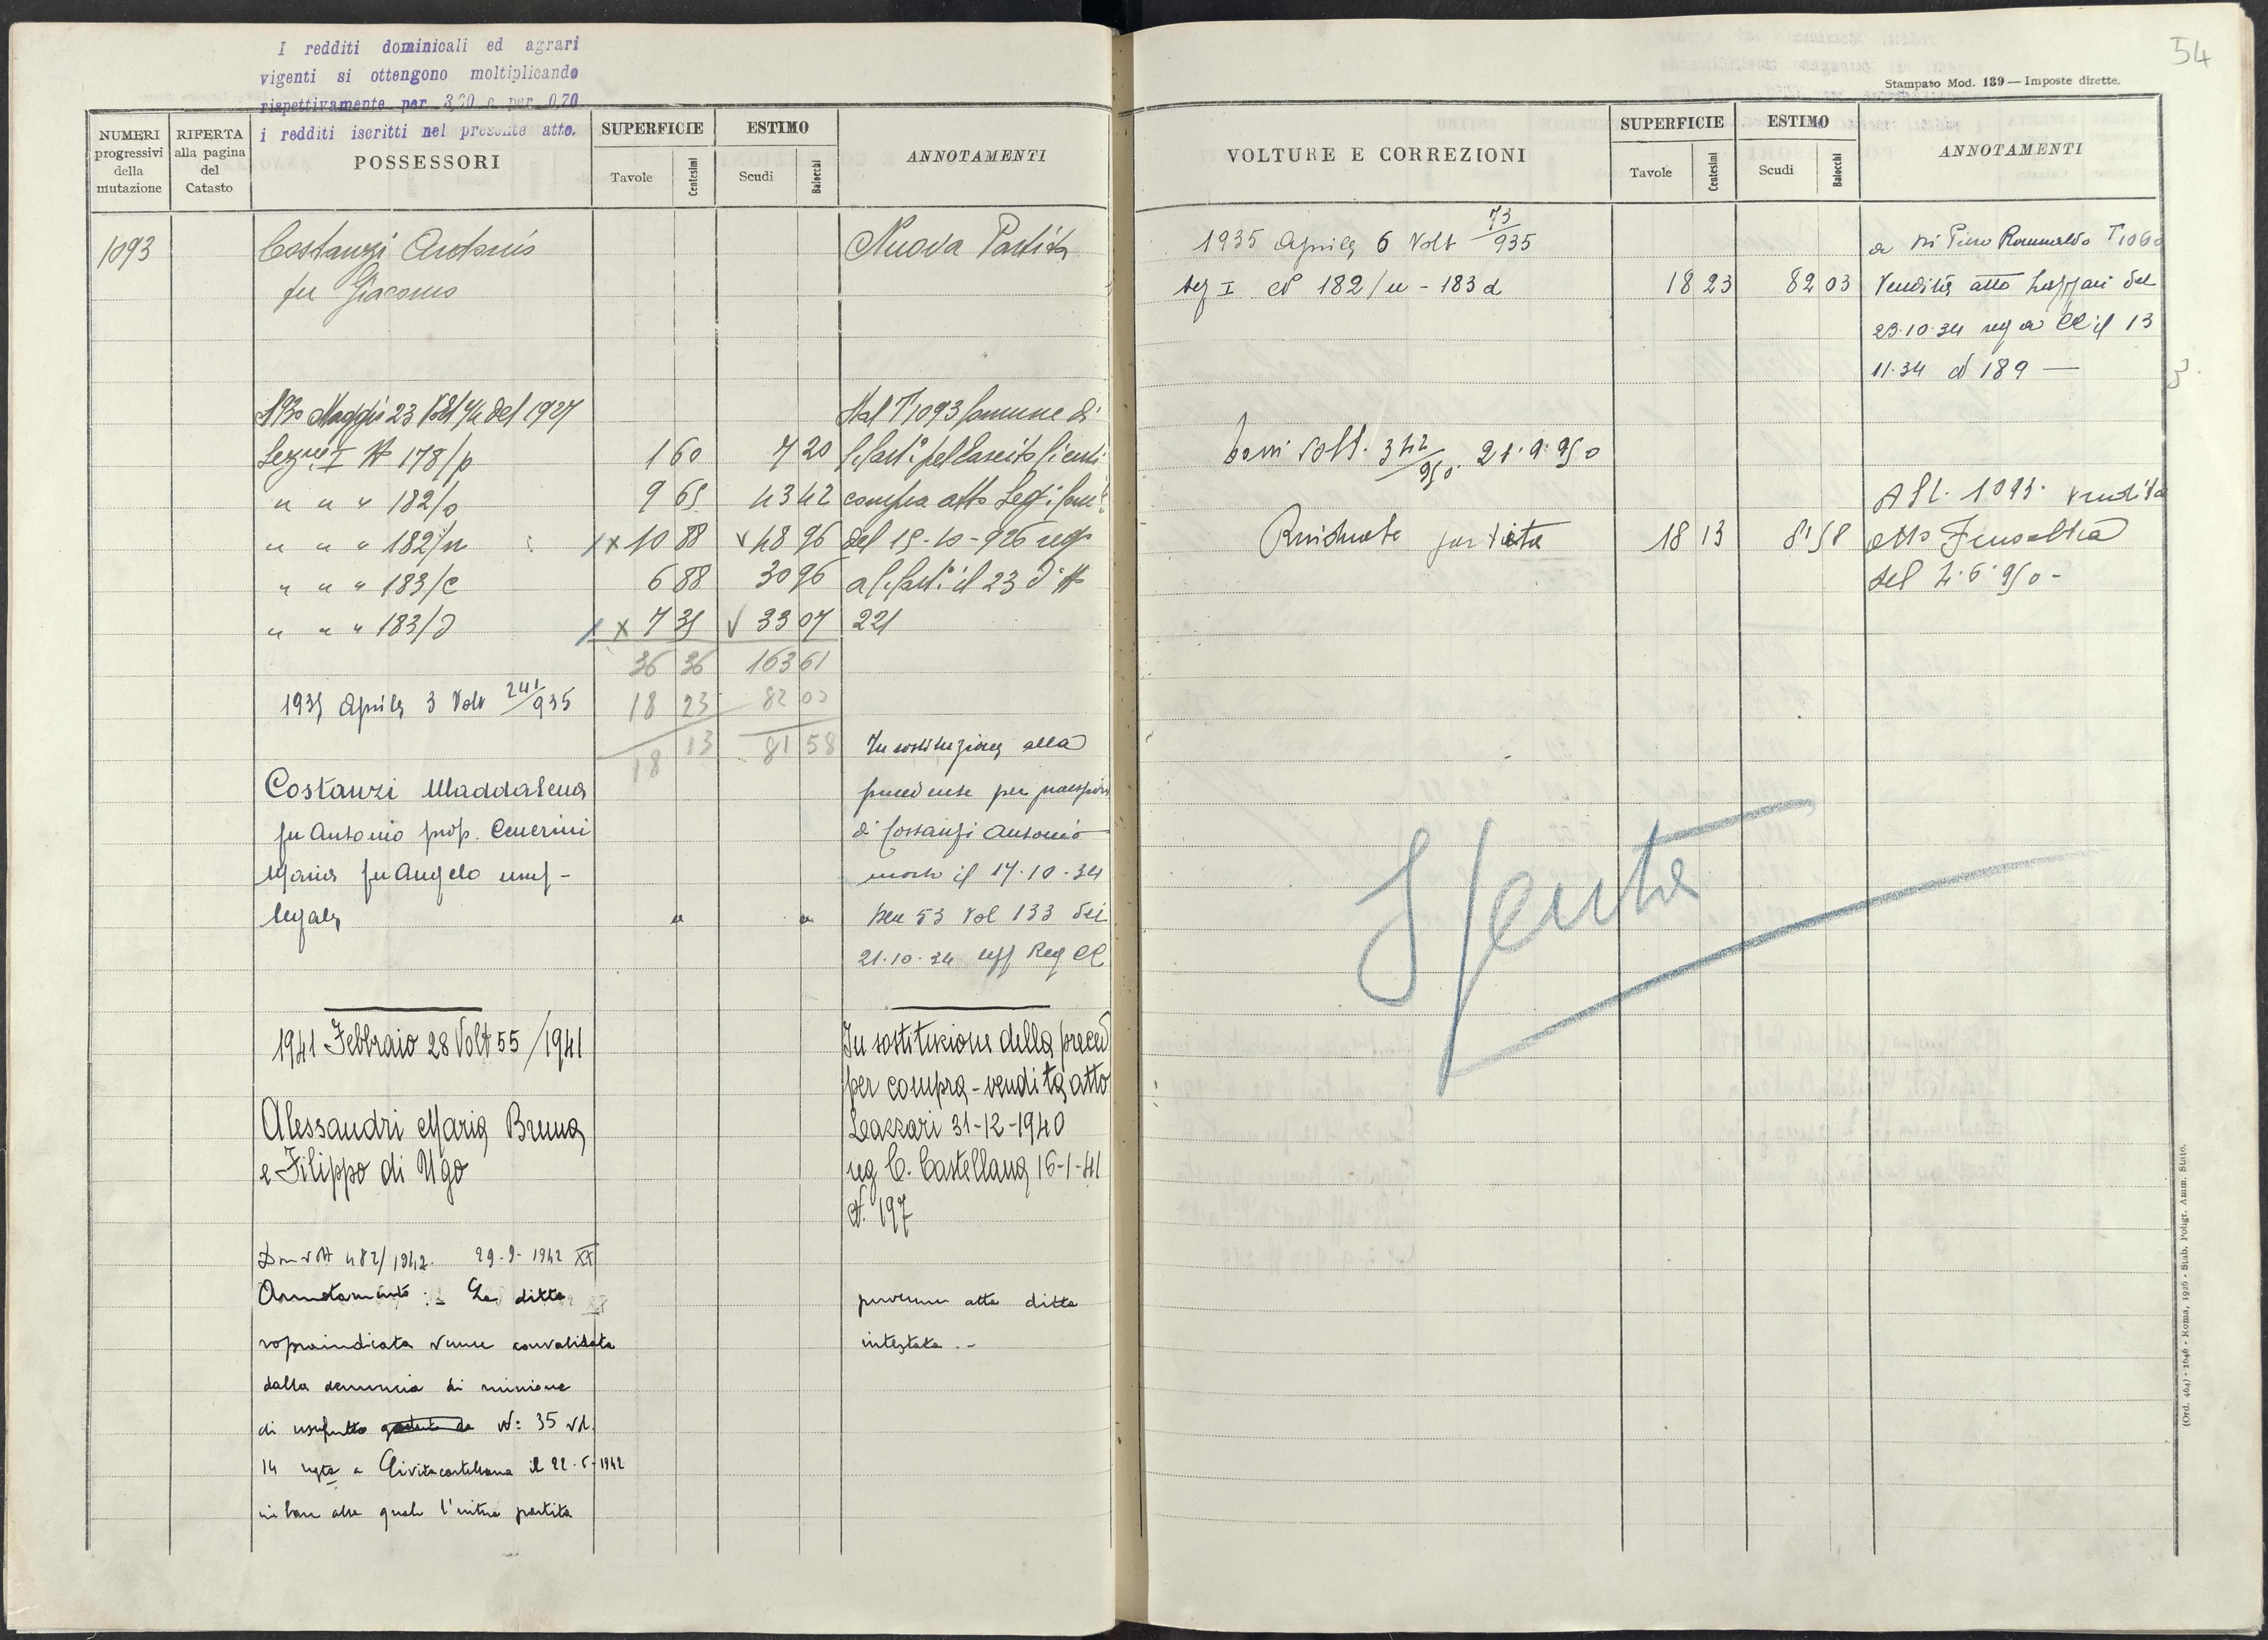 I redditi dominicali ed agrari
vigenti si ottengono moltiplicando
rispettivamente per 3,20 e per 0,70
i redditi iscritti nel presente atto.
NUMERI progressivi della mutazione
RIFERTA alla pagina del Catasto
POSSESSORI
SUPERFICIE Tavole Centesimi
ESTIMO Scudi Baiocchi
ANNOTAMENTI
1093 Costanzi Antonio Nuova Partita
fu Giacomo
1930 Maggio 23 Volt del 1927 Dal T 1093 Comune di
Sezne I N 178/p 1 60 7 20
" " " 182/o 9 65 43 42 compra atto
" " " 182/n x 10 88 √ 48 96 del 15-10-926 reg
" " " 183/c 6 88 30 96 il 23 di N
" " " 183/d x 7 35 √ 33 07 221
36 36 163 61
1935 Aprile 3 Volt 241/935 18 23 82 03
18 13 81 58
In sostituzione alla
Costanzi Maddalena precedente per
fu Antonio prop. Cenerini di Costanzi Antonio
Maria fu Angelo usuf- morto il 17.10.34
legale " " Den 53 Vol 133 del
21.10.34 Uff Reg CC
1941 Febbraio 28 Volt 55/1941 In sostituzione della preced
per compra-vendita atto
Alessandri Maria Bruna Lazzari 31-12-1940
e Filippo di Ugo reg C. Castellana 16-1-41
N. 197
Dom volt 482/1942. 29-9-1942 XX
Annotamento :- La ditta pervenne alla ditta
sopraindicata venne convalidata intestata.-
dalla denuncia di riunione
di usufrutto N: 35 vol.
14 regta a Civitacastellana il 22-5-1942
in base alla quale l'intera partita
54
Stampato Mod. 139 — Imposte dirette.
VOLTURE E CORREZIONI
SUPERFICIE Tavole Centesimi
ESTIMO Scudi Baiocchi
ANNOTAMENTI
1935 Aprile 6 Volt 73/935 a Di Piero Romualdo T1060
Sez I N 182/n - 183 d 18 23 82 03 Vendita atto Lazzari del
23.10.34 reg a CC il 13
11.34 N 189 —
Dom Volt. 342/950. 21.9.950
Al T. 1095. vendita
Residuata partita 18 13 81 58 atto
del 4.6.950-
Spenta
(Ord. 464) - 1646 - Roma, 1926 - Stab. Poligr. Amm. Stato.